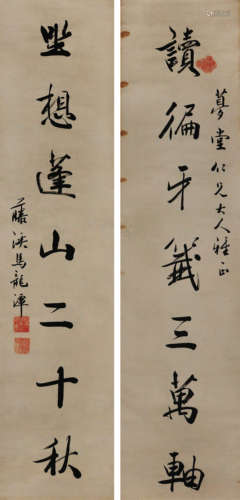 讀徧牙籤三萬軸
夢堂仁兄大人雅正
坐想蓬山二十秋
藤溪馬龍潭